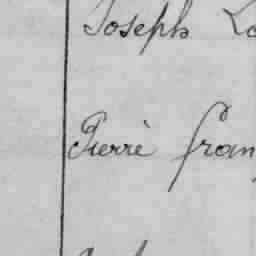 Joseph Lo
Pierrè fran